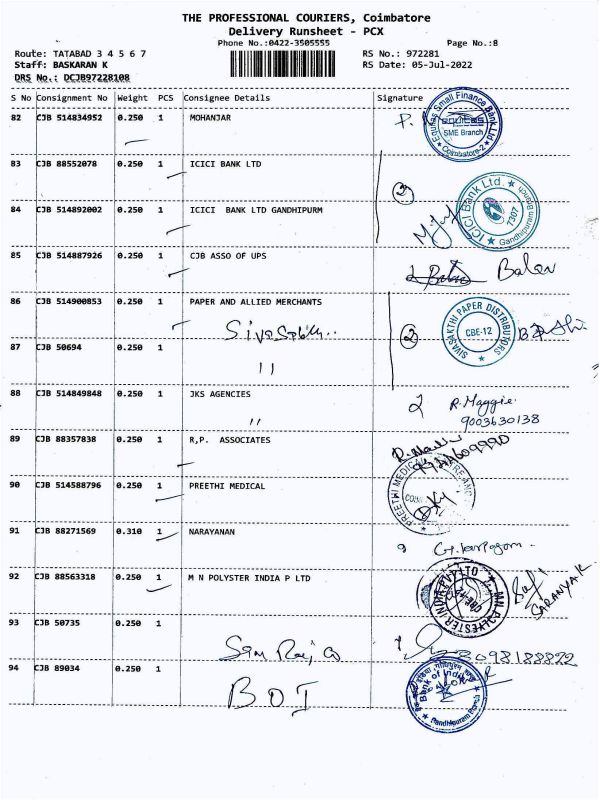 THE PROFESSIONAL COURIERS, Coimbatore
Delivery Runsheet - PCX
Phone No.:0422-3505555 Page No.:8
Route: TATABAD 3 4 5 6 7 RS No.: 972281
Staff: BASKARAN K RS Date: 05-Jul-2022
DRS No.: DCJB97228108
S No Consignment No Weight PCS Consignee Details Signature
82 CJB 514834952 0.250 1 MOHANJAR
Equitas Small Finance Bank Ltd
equitas
SME Branch
Coimbatore-2
83 CJB 88552078 0.250 1 ICICI BANK LTD
2
84 CJB 514892002 0.250 1 ICICI BANK LTD GANDHIPURM
ICICI Bank Ltd.
7307
Gandhipuram Branch
85 CJB 514887926 0.250 1 CJB ASSO OF UPS
Balan
86 CJB 514900853 0.250 1 PAPER AND ALLIED MERCHANTS
SIVASAKTHI PAPER DISTRIBUTORS
CBE-12
2
87 CJB 50694 0.250 1
88 CJB 514849848 0.250 1 JKS AGENCIES
2 R.Maggie
9003630138
89 CJB 88357838 0.250 1 R,P. ASSOCIATES
90 CJB 514588796 0.250 1 PREETHI MEDICAL
PREETHI MEDICAL
91 CJB 88271569 0.310 1 NARAYANAN
92 CJB 88563318 0.250 1 M N POLYSTER INDIA P LTD
M.N. POLYESTER INDIA PVT LTD
SARANYA K
93 CJB 50735 0.250 1
8098188822
94 CJB 89034 0.250 1
BOI
Bank of India
Gandhipuram Branch